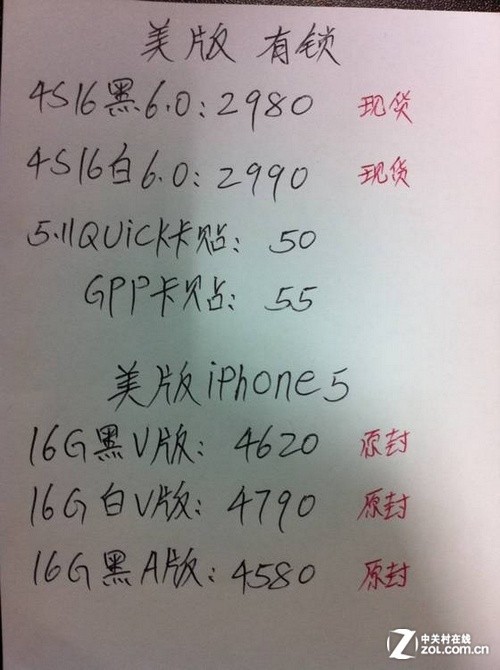 美版 有锁
4S16黑6.0:2980 现货
4S16白6.0:2990 现货
5.11QUiCK卡贴:50
GPP卡贴:55
美版iPhone5
16G黑V版:4620 原封
16G白V版:4790 原封
16G黑A版:4580 原封
Z 中关村在线
zol.com.cn